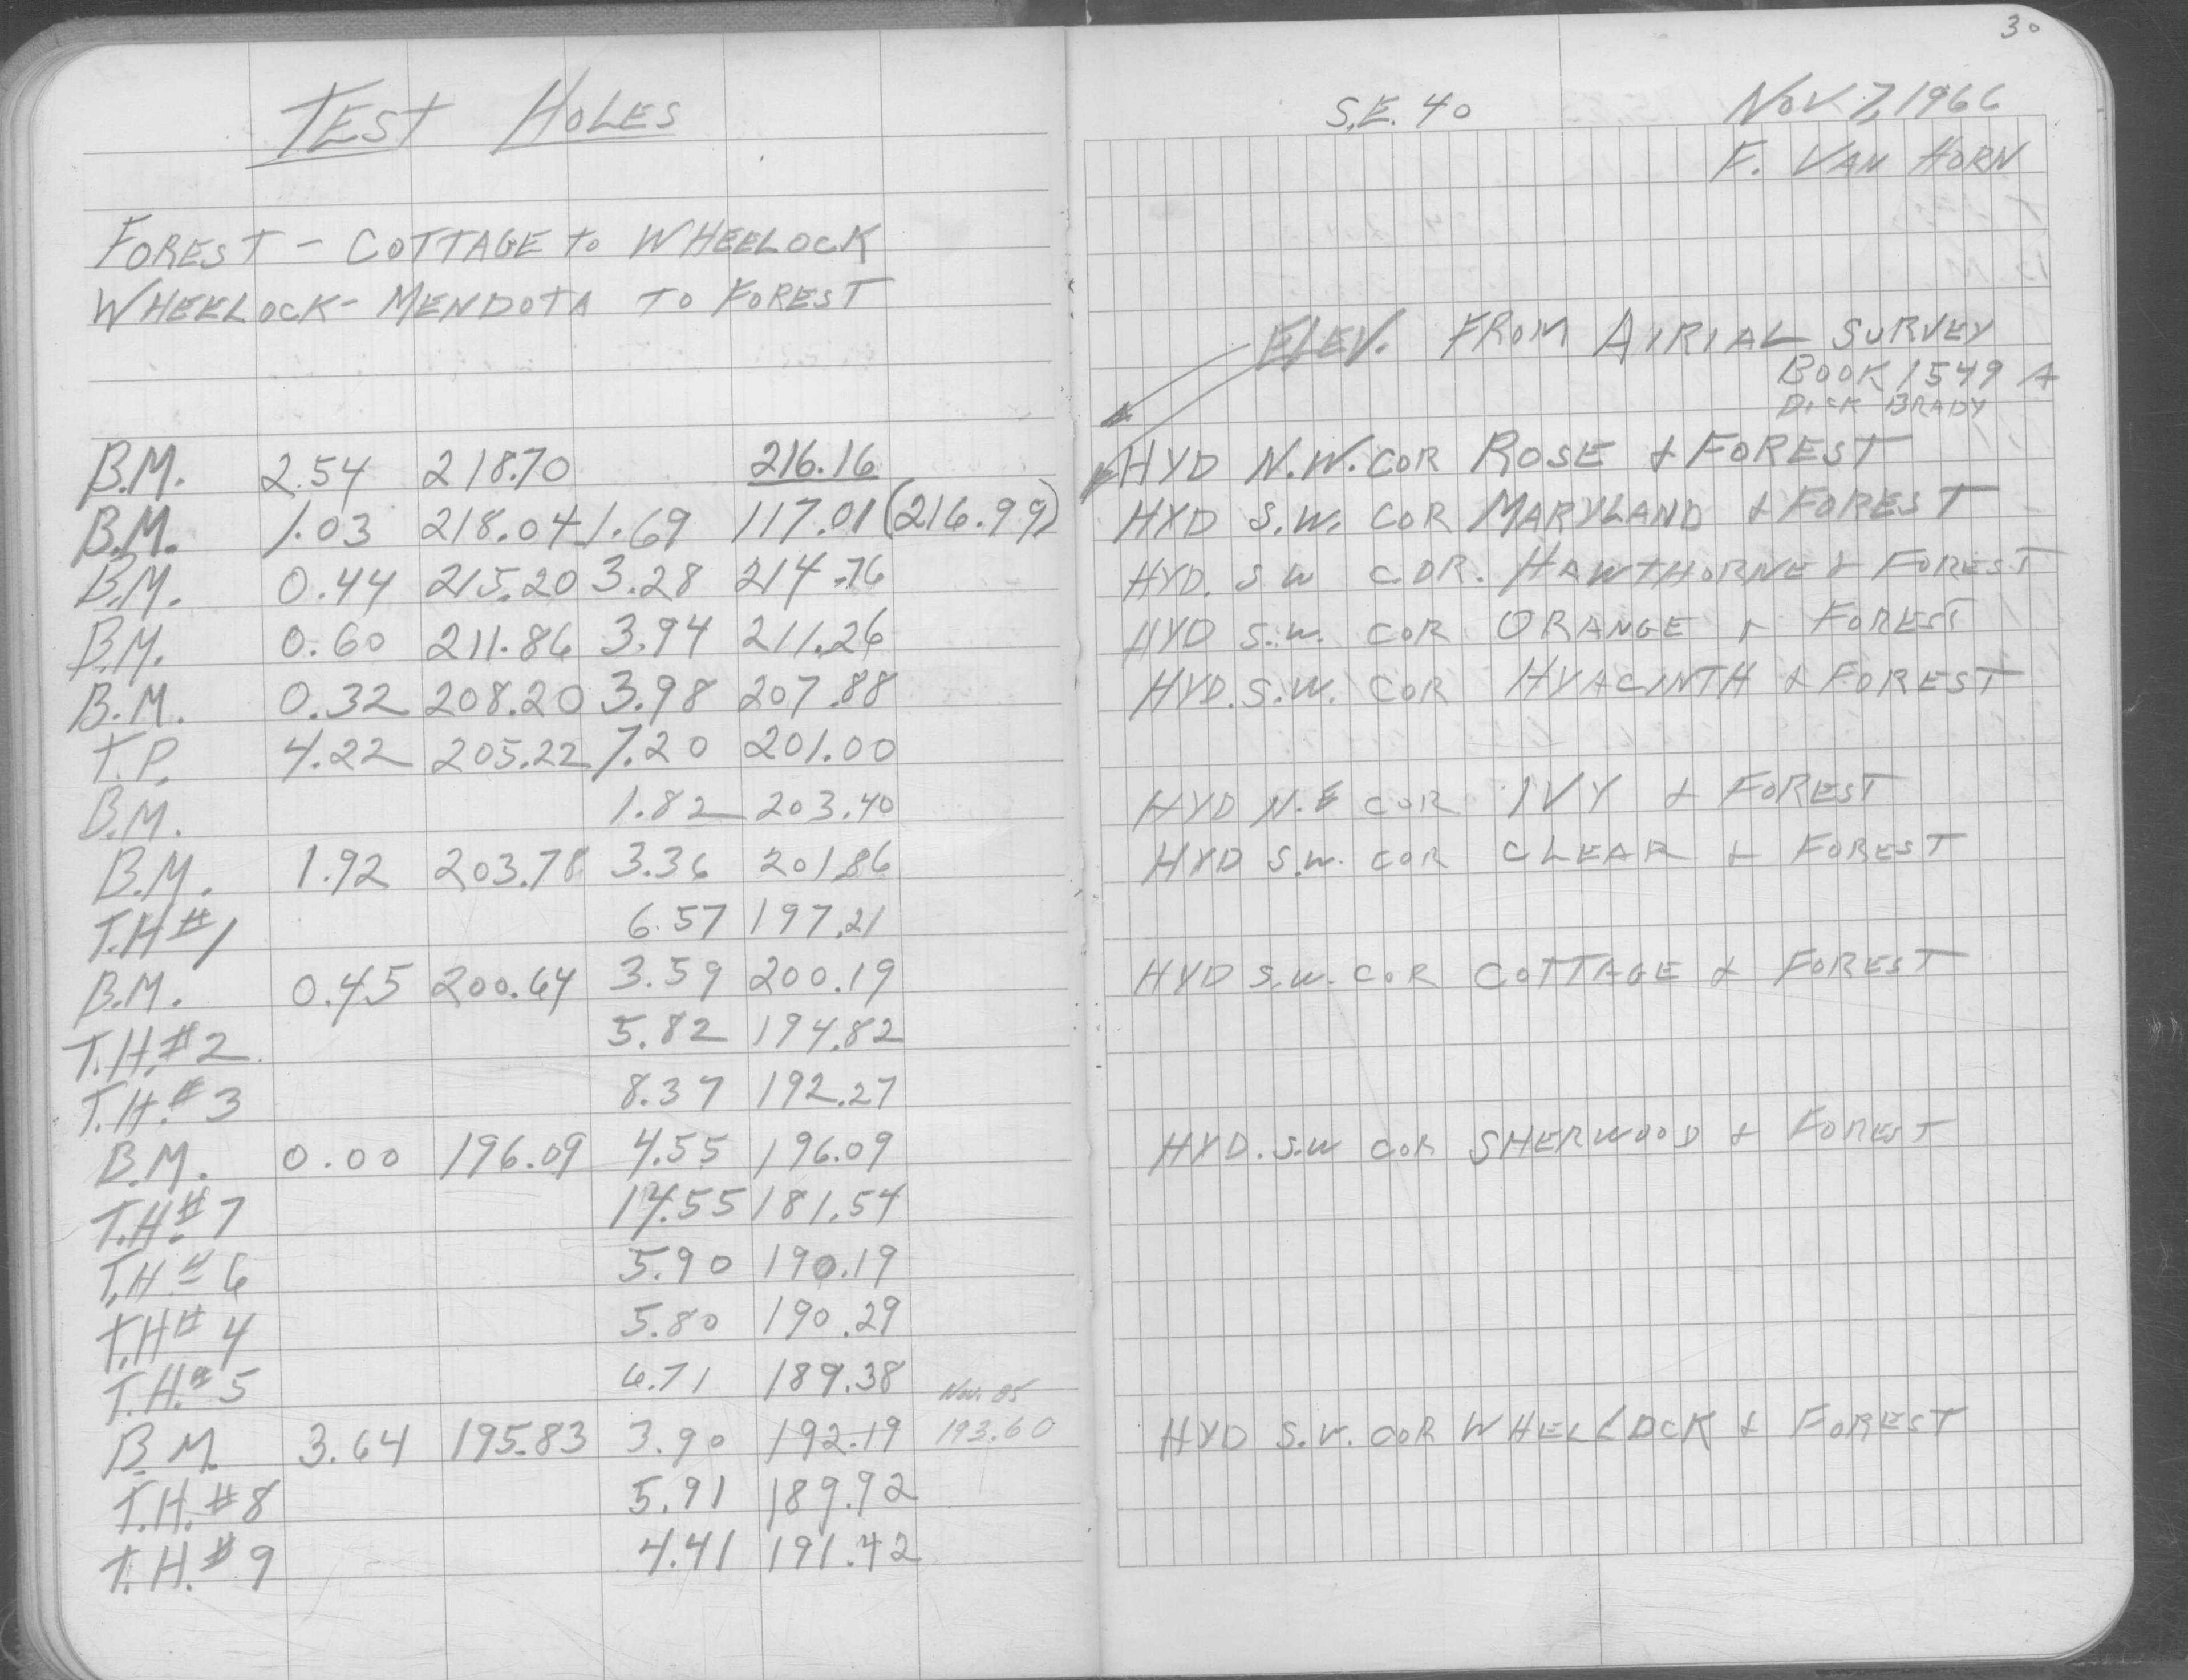 TEST HOLES
FOREST - COTTAGE to WHEELOCK
WHEELOCK - MENDOTA TO FOREST
B.M. 2.54 218.70 216.16
B.M. 1.03 218.04 1.69 117.01 (216.99)
B.M. 0.44 215.20 3.28 214.76
B.M. 0.60 211.86 3.94 211.26
B.M. 0.32 208.20 3.98 207.88
T.P. 4.22 205.22 7.20 201.00
B.M. 1.82 203.40
B.M. 1.92 203.78 3.36 201.86
T.H # 1 6.57 197.21
B.M. 0.45 200.64 3.59 200.19
T.H. # 2 5.82 194.82
T.H. # 3 8.37 192.27
B.M. 0.00 196.09 4.55 196.09
T.H. # 7 14.55 181.54
T.H # 6 5.90 190.19
T.H # 4 5.80 190.29
T.H. # 5 6.71 189.38
Nov. 85
B.M. 3.64 195.83 3.90 192.19 193.60
T.H. # 8 5.91 189.92
T.H. # 9 4.41 191.42
30
S.E. 40 NOV 7, 1966
F. VAN HORN
ELEV. FROM AIRIAL SURVEY
BOOK 1549 A
DICK BRADY
HYD N.W. COR ROSE & FOREST
HYD S.W. COR MARYLAND & FOREST
HYD. S.W COR. HAWTHORNE & FOREST
HYD S.W. COR ORANGE & FOREST
HYD. S.W. COR HYACINTH & FOREST
HYD N.E COR IVY & FOREST
HYD S.W. COR CLEAR & FOREST
HYD S.W. COR COTTAGE & FOREST
HYD. S.W COR SHERWOOD & FOREST
HYD S.W. COR WHELLOCK & FOREST